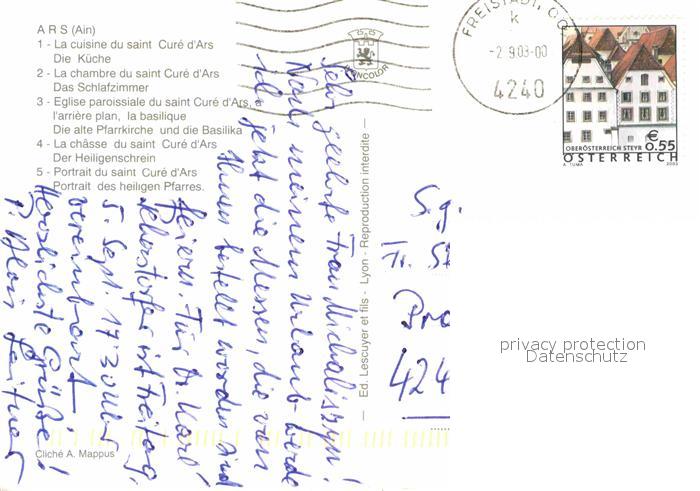 ARS (Ain)
1 - La cuisine du saint Curé d'Ars
Die Küche
2 - La chambre du saint Curé d'Ars
Das Schlafzimmer
3 - Eglise paroissiale du saint Curé d'Ars, à
l'arrière plan, la basilique
Die alte Pfarrkirche und die Basilika
4 - La châsse du saint Curé d'Ars
Der Heiligenschrein
5 - Portrait du saint Curé d'Ars
Portrait des heiligen Pfarres.
Sehr geehrte Frau
Nach meinem Urlaub werde
ich jetzt die Messen, die von
Ihnen bestellt worden sind
feiern. Für Dr. Karl
ist Freitag,
5. Sept. 17 30 Uhr
vereinbart.
Herzlichste Grüße!
P. Alois
Cliché A. Mappus
— Ed. Lescuyer et fils - Lyon - Reproduction interdite —
FREISTADT, OÖ
k
-2.9.03-00
4240
OBERÖSTERREICH STEYR
€ 0.55
ÖSTERREICH
A. TUMA 2003
S.g.
Fr.
424
privacy protection
Datenschutz